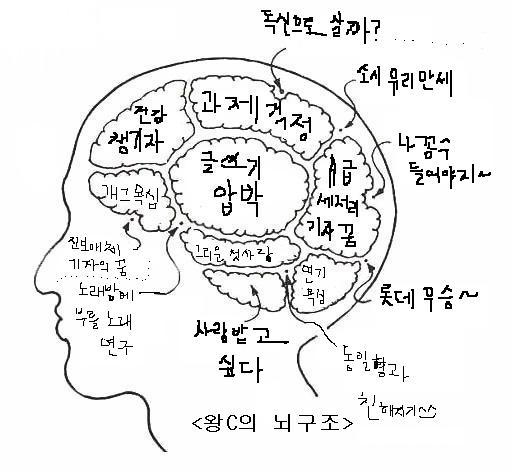 독신으로 살까?
소시 유리 만세
과제 걱정
전감
챙기자
나꼼수
들어야지~
글쓰기
압박
시급
세저리
기자 꿈
개그 욕심
진보매체
기자의 꿈
그리운 첫사랑
연기
욕심
노래방에
부를 노래
연구
롯데 우승~
사람 밥 고
싶다
동일형과
친해지기
<왕C의 뇌구조>